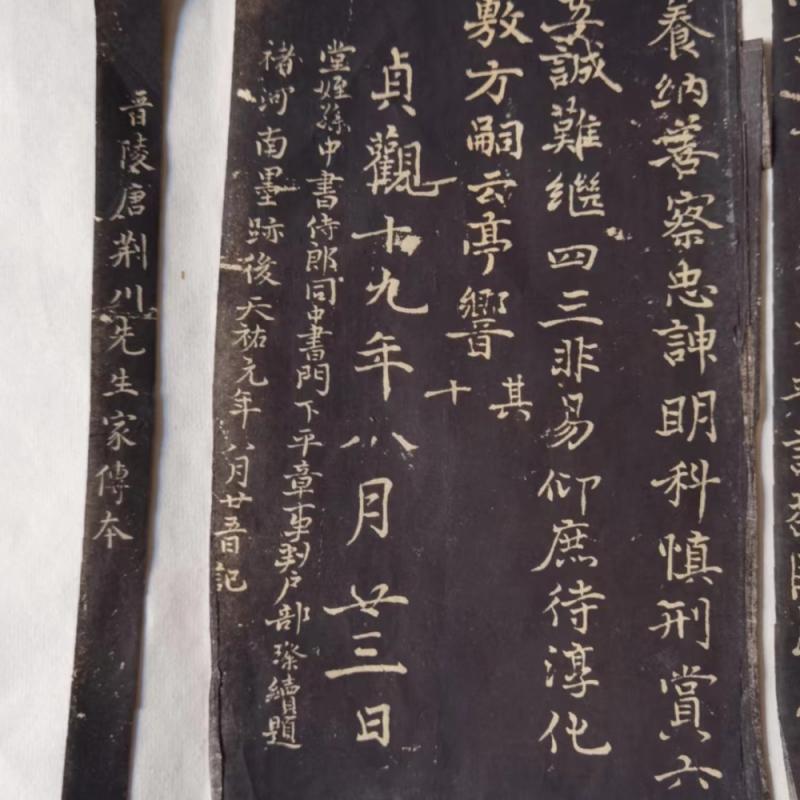 養納善察忠訷明科慎刑賞六
誠難繼四三非易仰庶待淳化
敷方嗣云亭響其十
貞觀十九年八月廿三日
堂姪孫中書侍郎同中書門下平章事判戶部璨續題
褚河南墨跡後天祐元年八月廿五日記
晉陵唐荆川先生家傳本